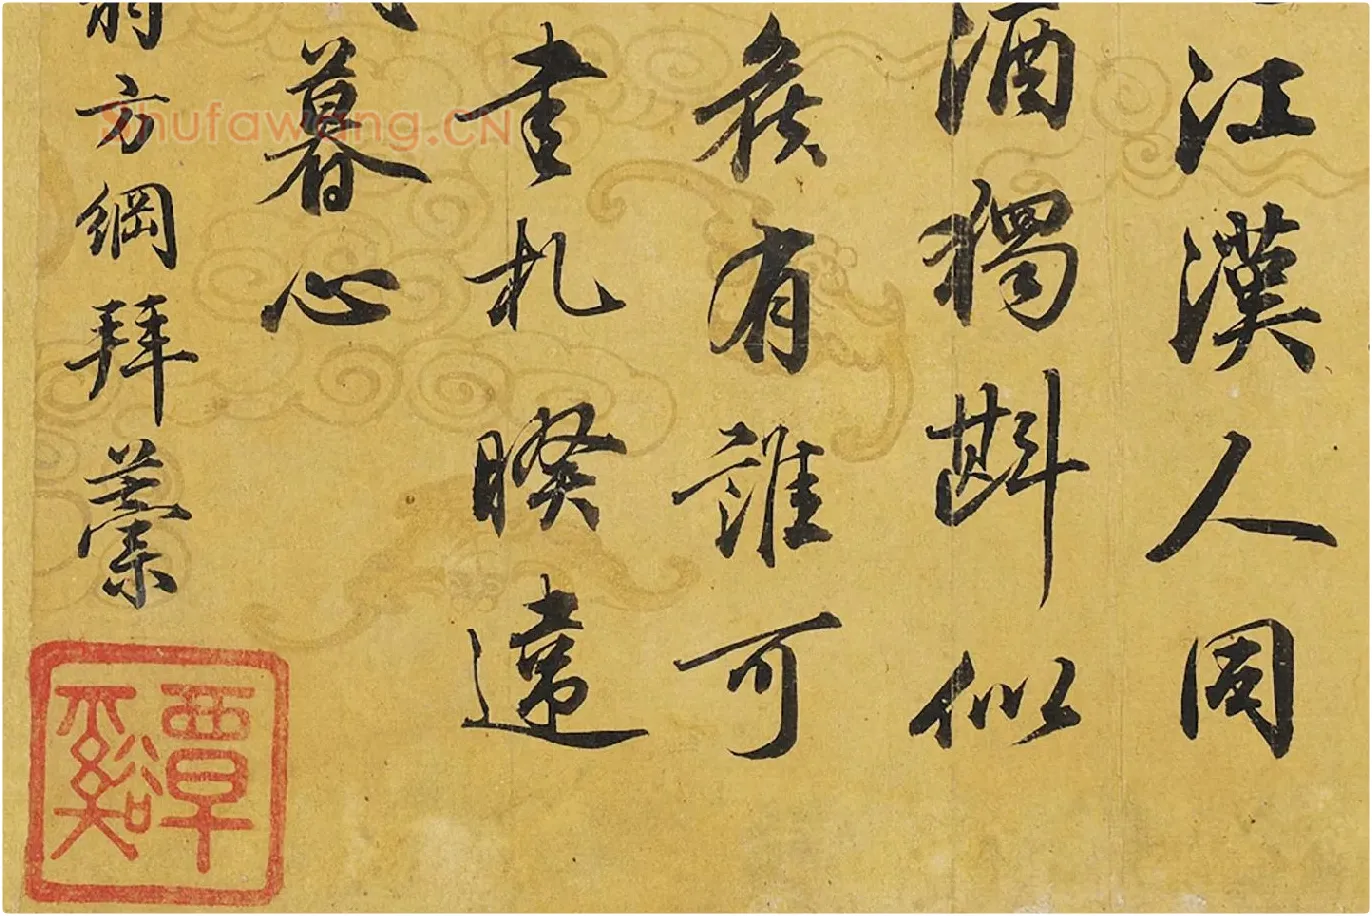 江漢人周
酒獨斟似
矦有誰可
書札睽違
暮心
翁方綱拜藁
覃谿
Shufawang.CN